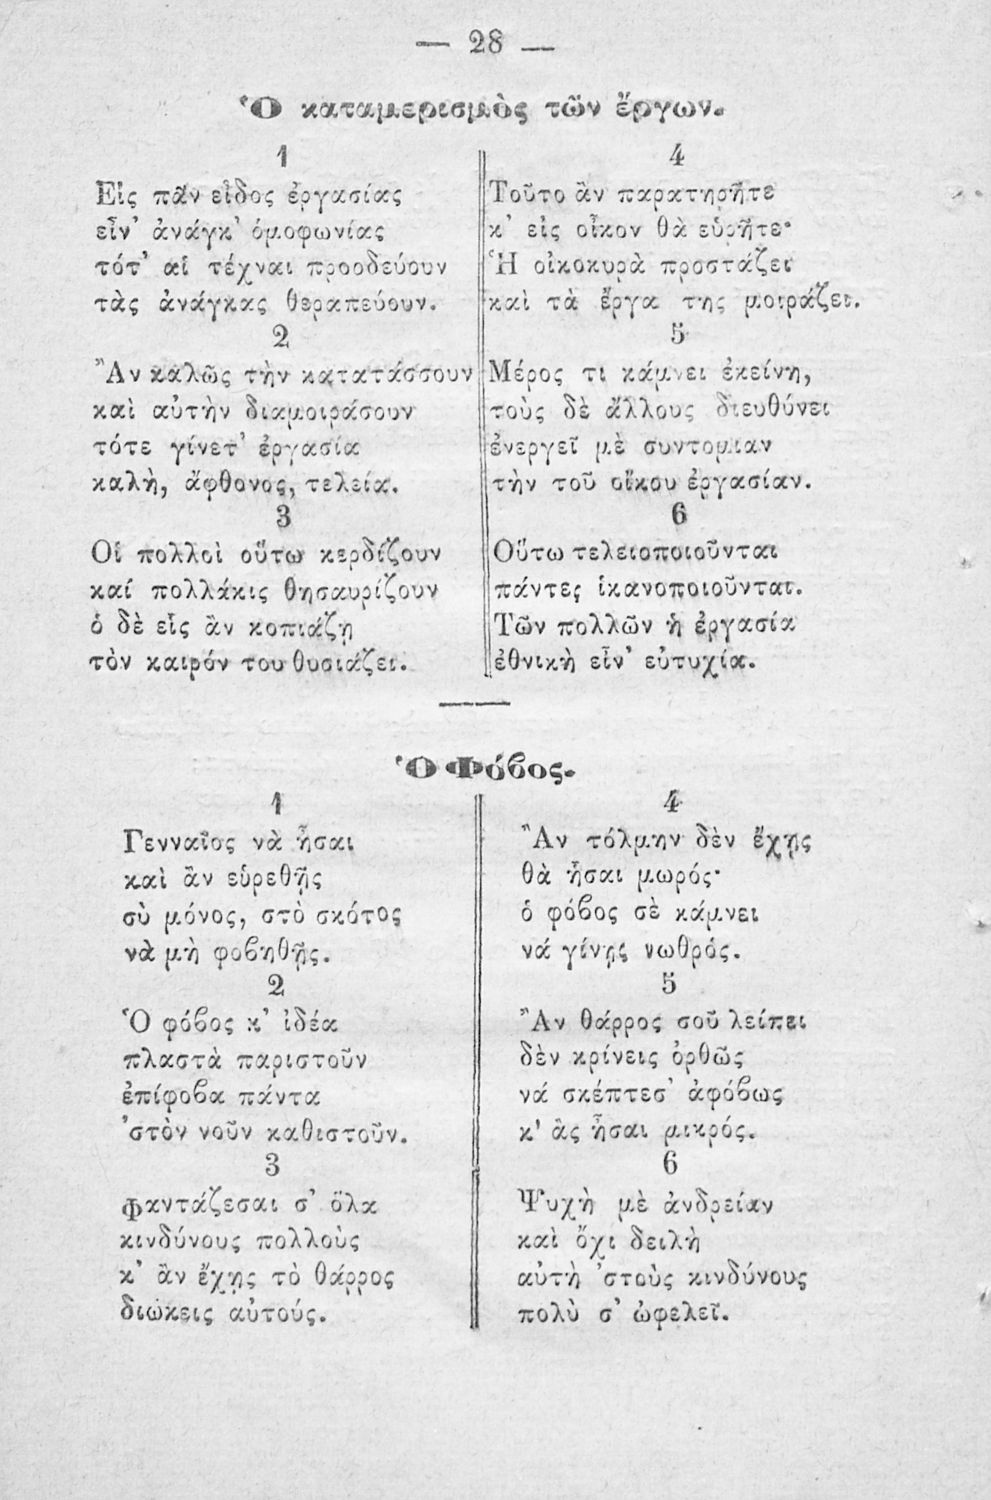 — 28 —
Ὁ καταμερισμὸς τῶν ἔργων.
1
Εἰς πᾶν εἶδος ἐργασίας
εἶν᾽ ἀνάγκ᾽ ὁμοφωνίας
τότ᾽ αἱ τέχναι προοδεύουν
τὰς ἀνάγκας θεραπεύουν.
2
Ἂν καλῶς τὴν κατατάσσουν
καὶ αὐτὴν διαμοιράσουν
τότε γίνετ᾽ ἐργασία
καλὴ, ἄφθονος, τελεία.
3
Οἱ πολλοὶ οὕτω κερδίζουν
καί πολλάκις θησαυρίζουν
ὁ δὲ εἷς ἂν κοπιάζῃ
τὸν καιρόν του θυσιάζει.
4
Τοῦτο ἂν παρατηρῆτε
κ᾽ εἰς οἶκον θὰ εὑρῆτε·
Ἡ οἰκοκυρὰ προστάζει
καὶ τὰ ἔργα της μοιράζει.
5
Μέρος τι κάμνει ἐκείνη,
τοὺς δὲ ἄλλους διευθύνει
ἐνεργεῖ μὲ συντομιαν
τὴν τοῦ οἴκου ἐργασίαν.
6
Οὕτω τελειοποιοῦνται
πάντες ἱκανοποιοῦνται.
Τῶν πολλῶν ἡ ἐργασία
ἐθνικὴ εἶν᾽ εὐτυχία.
Ὁ Φόβος.
1
Γενναῖος νὰ ἦσαι
καὶ ἂν εὑρεθῇς
σὺ μόνος, στὸ σκότος
νὰ μὴ φοβηθῇς.
2
Ὁ φόβος κ᾽ ἰδέα
πλαστὰ παριστοῦν
ἐπίφοβα πάντα
᾽στὸν νοῦν καθιστοῦν.
3
Φαντάζεσαι σ᾽ ὅλα
κινδύνους πολλοὺς
κ᾽ ἂν ἔχῃς τὸ θάρρος
διώκεις αὐτούς.
4
Ἂν τόλμην δὲν ἔχῃς
θὰ ἦσαι μωρός·
ὁ φόβος σὲ κάμνει
νά γίνῃς νωθρός.
5
Ἂν θάρρος σοῦ λείπει
δὲν κρίνεις ὀρθῶς
νά σκέπτεσ᾽ ἀφόβως
κ᾽ ἂς ἦσαι μικρός.
6
Ψυχὴ μὲ ἀνδρείαν
καὶ ὄχι δειλὴ
αὐτὴ ᾽στοὺς κινδύνους
πολὺ σ᾽ ὠφελεῖ.